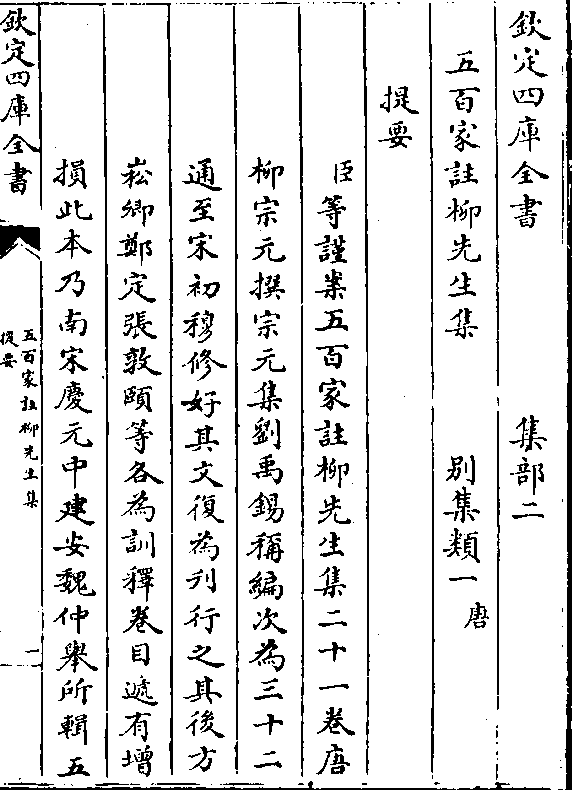 欽定四庫全書 集部二
五百家註柳先生集 别集類一 唐
提要
臣等謹案五百家註柳先生集二十一卷唐
柳宗元撰宗元集劉禹錫稱編次為三十二
通至宋初穆修好其文復為刋行之其後方
崧卿鄭定張敦頤等各為訓釋卷目遞有增
損此本乃南宋慶元中建安魏仲舉所輯五
欽定四庫全書
五百家註柳先生集
提要
一